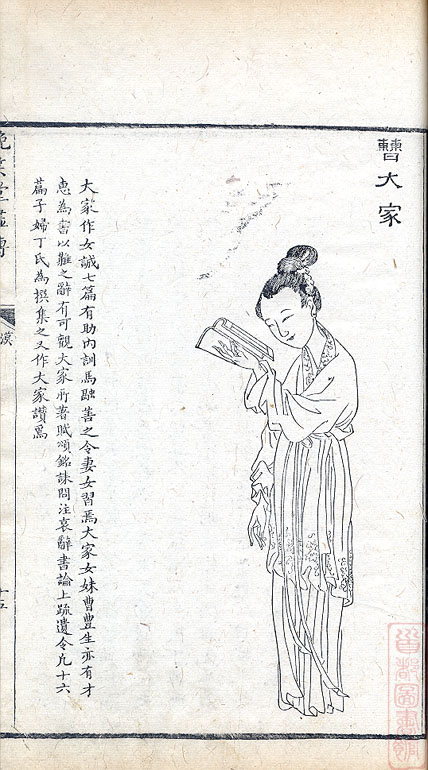 曹大家
大家作女誡七篇有助內訓馬融善之令妻女習焉大家女妹曹豐生亦有才
惠為書以難之辭有可觀大家所著賦頌銘誄問注哀辭書論上疏遺令凡十六
篇子婦丁氏為撰集之又作大家讚焉
晚笑堂畫傳
漢
十五
首都圖書館